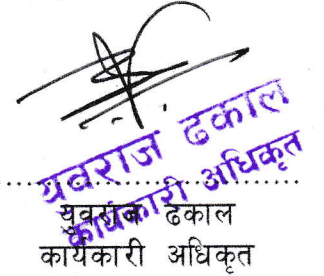 युवराज ढकाल
कार्यकारी अधिकृत
युवराज ढकाल
कार्यकारी अधिकृत